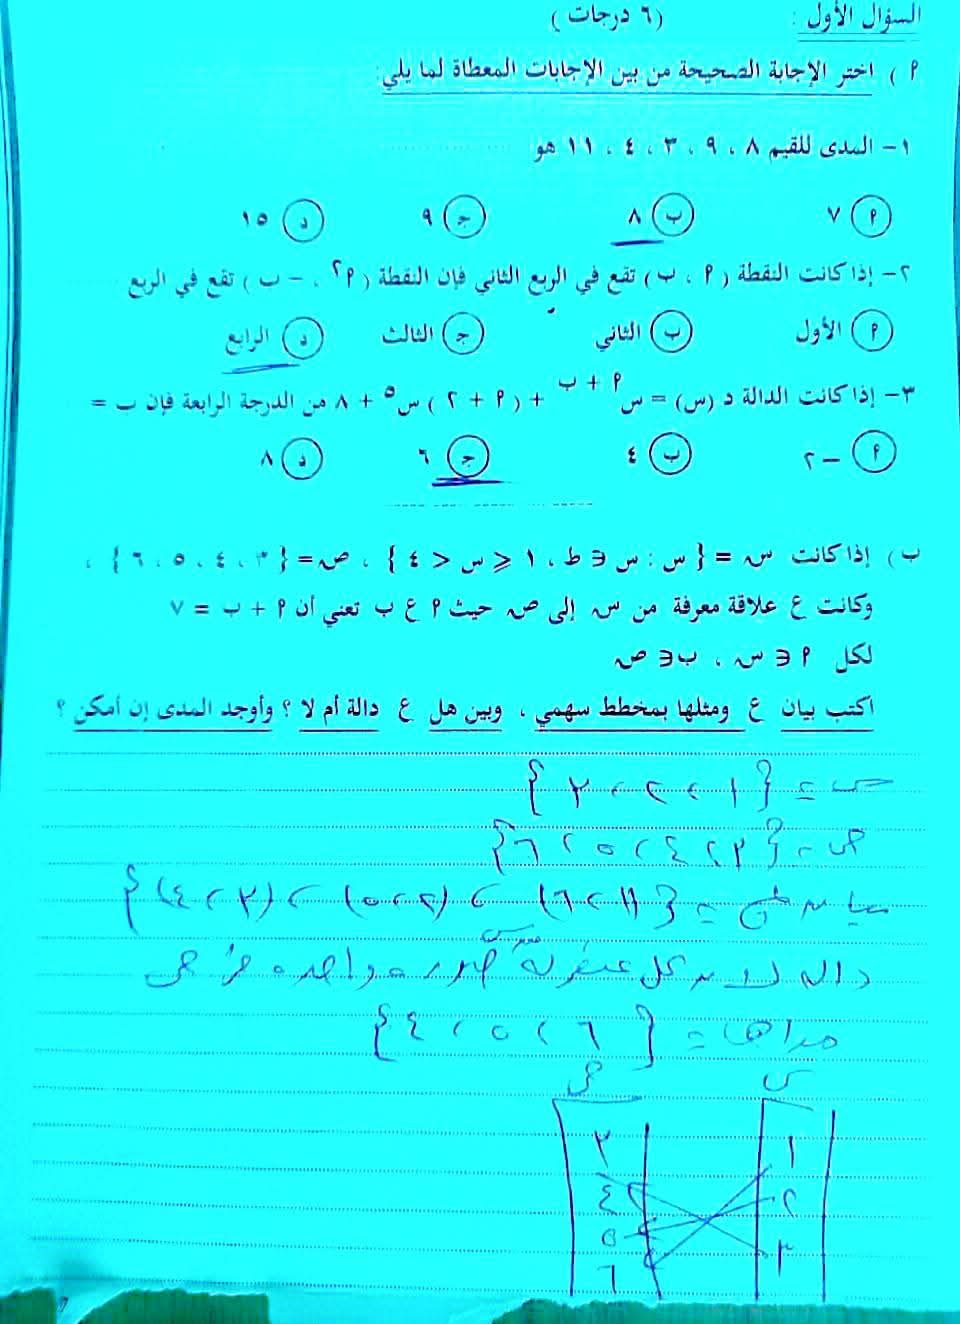 السؤال الأول : ( ٦ درجات )
٩ ) اختر الإجابة الصحيحة من بين الإجابات المعطاة لما يلي :
١- المدى للقيم ٨ ، ٩ ، ٣ ، ٤ ، ١١ هو
٩ ٧ ب ٨ ج ٩ د ١٥
٢- إذا كانت النقطة ( ٩ ، ب ) تقع في الربع الثاني فإن النقطة ( ٩٢ ، - ب ) تقع في الربع
٩ الأول ب الثاني ج الثالث د الرابع
٣- إذا كانت الدالة د (س) = س٩ + ب + ( ٩ + ٢ ) س٥ + ٨ من الدرجة الرابعة فإن ب =
٩ -٢ ب ٤ ج ٦ د ٨
ب) إذا كانت س = { س : س ∋ ط ، ١ ⩽ س < ٤ } ، ص = { ٣ ، ٤ ، ٥ ، ٦ } ،
وكانت ع علاقة معرفة من س إلى ص حيث ٩ ع ب تعني أن ٩ + ب = ٧
لكل ٩ ∋ س ، ب ∋ ص
اكتب بيان ع ومثلها بمخطط سهمي ، وبين هل ع دالة أم لا ؟ وأوجد المدى إن أمكن ؟
س = { ١ ، ٢ ، ٣ }
ص = { ٣ ، ٤ ، ٥ ، ٦ }
بيان ع = { (١ ، ٦) ، (٢ ، ٥) ، (٣ ، ٤) }
دالة لان كل عنصر من س له صورة واحدة في ص
مداها = { ٦ ، ٥ ، ٤ }
س ص
١ ٣
٢ ٤
٣ ٥
٦